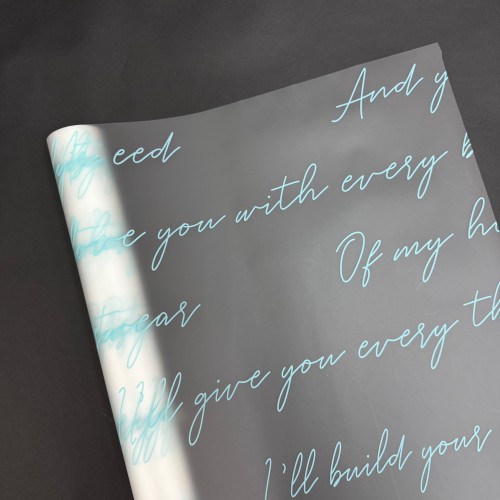 And y
eed
you with every b
Of my h
I'll give you every th
I'll build your